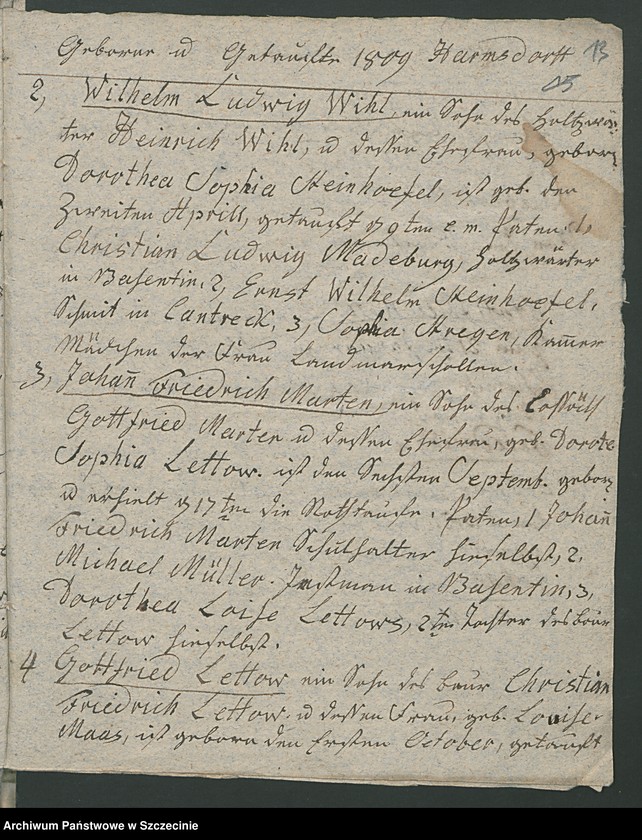 Geborne u Getaufte 1809 Harmsdorff 13
15
2, Wilhelm Ludwig Wihl, ein Sohn des Holtzwär-
ter Heinrich Wihl, u dessen Ehefrau, geborn
Dorothea Sophia Steinhoefel, ist geb. den
Zweiten Aprill, getauft d 9ten e. m. Paten, 1,
Christian Ludwig Madeburg, Holtzwärter
in Basentin. 2, Ernst Wilhelm Steinhoefel,
Schmit in Cantreck. 3, Sophia Stregen, Kammer
Mädchen der Frau Landmarschallen.
3, Johan̄ Friedrich Marten, ein Sohn des Cossäth
Gottfried Marten u dessen Ehefrau, geb. Dorote
Sophia Lettow. ist den Sechsten Septemb. geborn
u erhielt d 17ten die Nothtaufe. Paten, 1 Johan̄
Friedrich Marten Schulhalter hieselbst, 2.
Michael Müller. Instman in Basentin, 3,
Dorothea Loise Lettows, 2te Tochter des baur
Lettow hieselbst.
4 Gottfried Lettow ein Sohn des baur Christian
Friedrich Lettow. u dessen Frau, geb. Louise
Maas, ist geborn den Ersten October, getauft
Archiwum Państwowe w Szczecinie